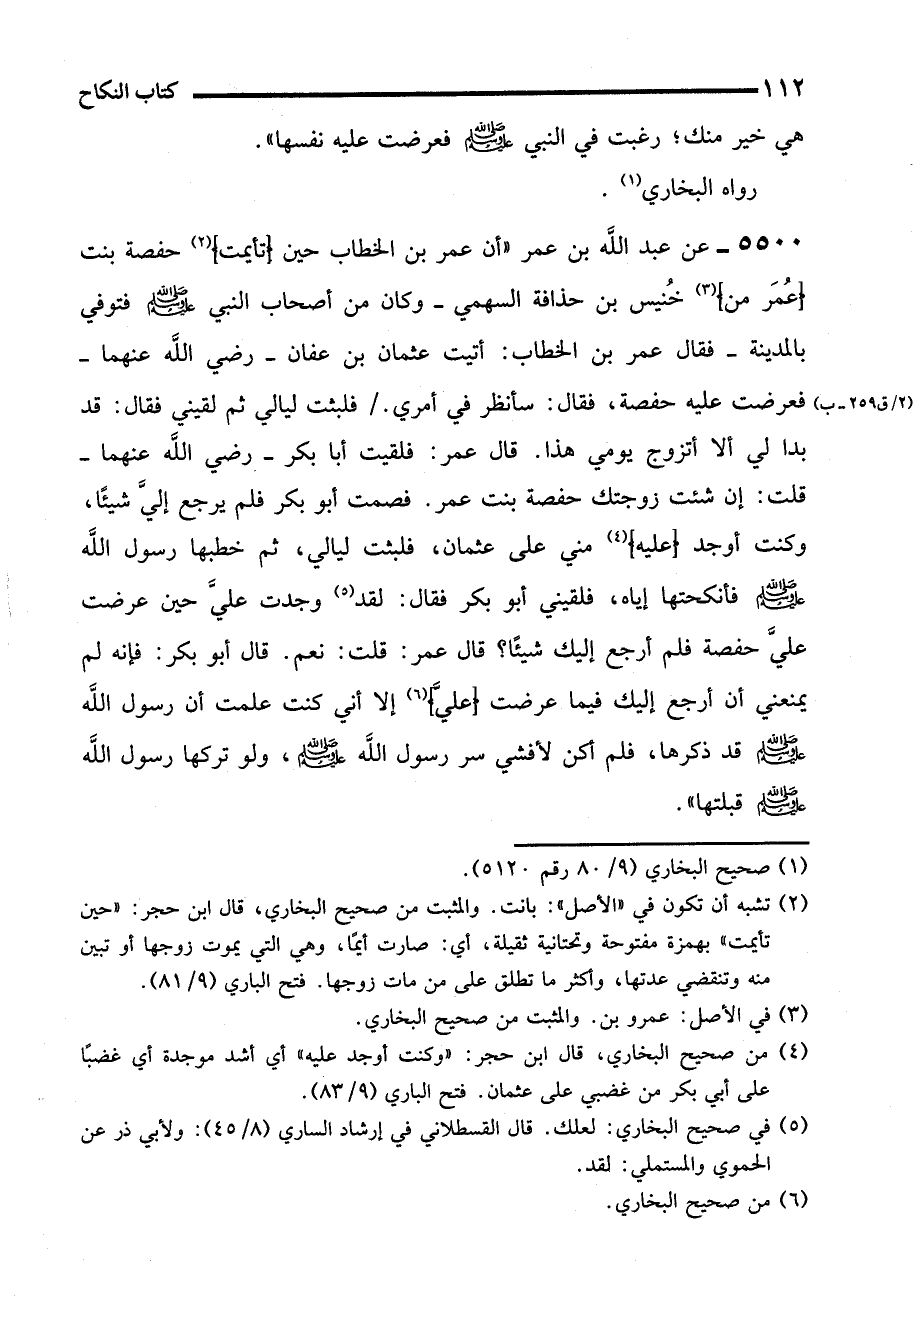 ١١٢ كتاب النكاح
هي خير منك؛ رغبت في النبي ﷺ فعرضت عليه نفسها».
رواه البخاري(١) .
٥٥٠٠ ـ عن عبد اللَّه بن عمر «أن عمر بن الخطاب حين {تأيمت}(٢) حفصة بنت
{عُمَرَ من}(٣) خُنيس بن حذافة السهمي ـ وكان من أصحاب النبي ﷺ فتوفي
بالمدينة ـ فقال عمر بن الخطاب: أتيت عثمان بن عفان ـ رضي اللَّه عنهما ـ
(٢/ق٢٥٩ـ ب) فعرضت عليه حفصة، فقال: سأنظر في أمري./ فلبثت ليالي ثم لقيني فقال: قد
بدا لي ألا أتزوج يومي هذا. قال عمر: فلقيت أبا بكر ـ رضي اللَّه عنهما ـ
قلت: إن شئت زوجتك حفصة بنت عمر. فصمت أبو بكر فلم يرجع إليَّ شيئًا،
وكنت أوجد {عليه}(٤) مني على عثمان، فلبثت ليالي، ثم خطبها رسول اللَّه
ﷺ فأنكحتها إياه، فلقيني أبو بكر فقال: لقد(٥) وجدت عليَّ حين عرضت
عليَّ حفصة فلم أرجع إليك شيئًا؟ قال عمر: قلت: نعم. قال أبو بكر: فإنه لم
يمنعني أن أرجع إليك فيما عرضت {عليَّ}(٦) إلا أني كنت علمت أن رسول اللَّه
ﷺ قد ذكرها، فلم أكن لأفشي سر رسول اللَّه ﷺ ، ولو تركها رسول اللَّه
ﷺ قبلتها».
(١) صحيح البخاري (٩/ ٨٠ رقم ٥١٢٠).
(٢) تشبه أن تكون في «الأصل»: بانت. والمثبت من صحيح البخاري، قال ابن حجر: «حين
تأيمت» بهمزة مفتوحة وتحتانية ثقيلة، أي: صارت أيمًا، وهي التي يموت زوجها أو تبين
منه وتنقضي عدتها، وأكثر ما تطلق على من مات زوجها. فتح الباري (٩/ ٨١).
(٣) في الأصل: عمرو بن. والمثبت من صحيح البخاري.
(٤) من صحيح البخاري، قال ابن حجر: «وكنت أوجد عليه» أي أشد موجدة أي غضبًا
على أبي بكر من غضبي على عثمان. فتح الباري (٩/ ٨٣).
(٥) في صحيح البخاري: لعلك. قال القسطلاني في إرشاد الساري (٨/ ٤٥): ولأبي ذر عن
الحموي والمستملي: لقد.
(٦) من صحيح البخاري.